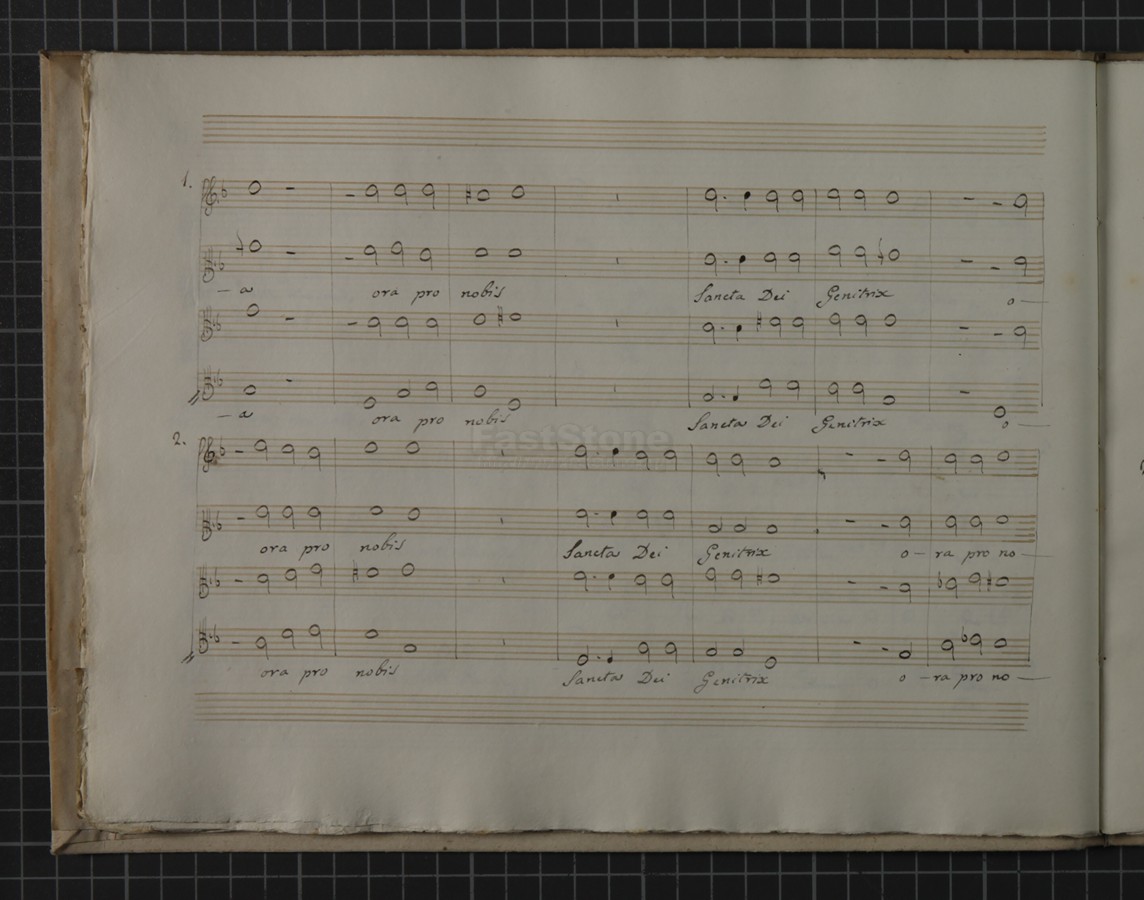 1.
- a ora pro nobis Sancta Dei Genitrix o -
- a ora pro nobis Sancta Dei Genitrix o -
2.
ora pro nobis Sancta Dei Genitrix o - ra pro no -
ora pro nobis Sancta Dei Genitrix o - ra pro no -
FastStone